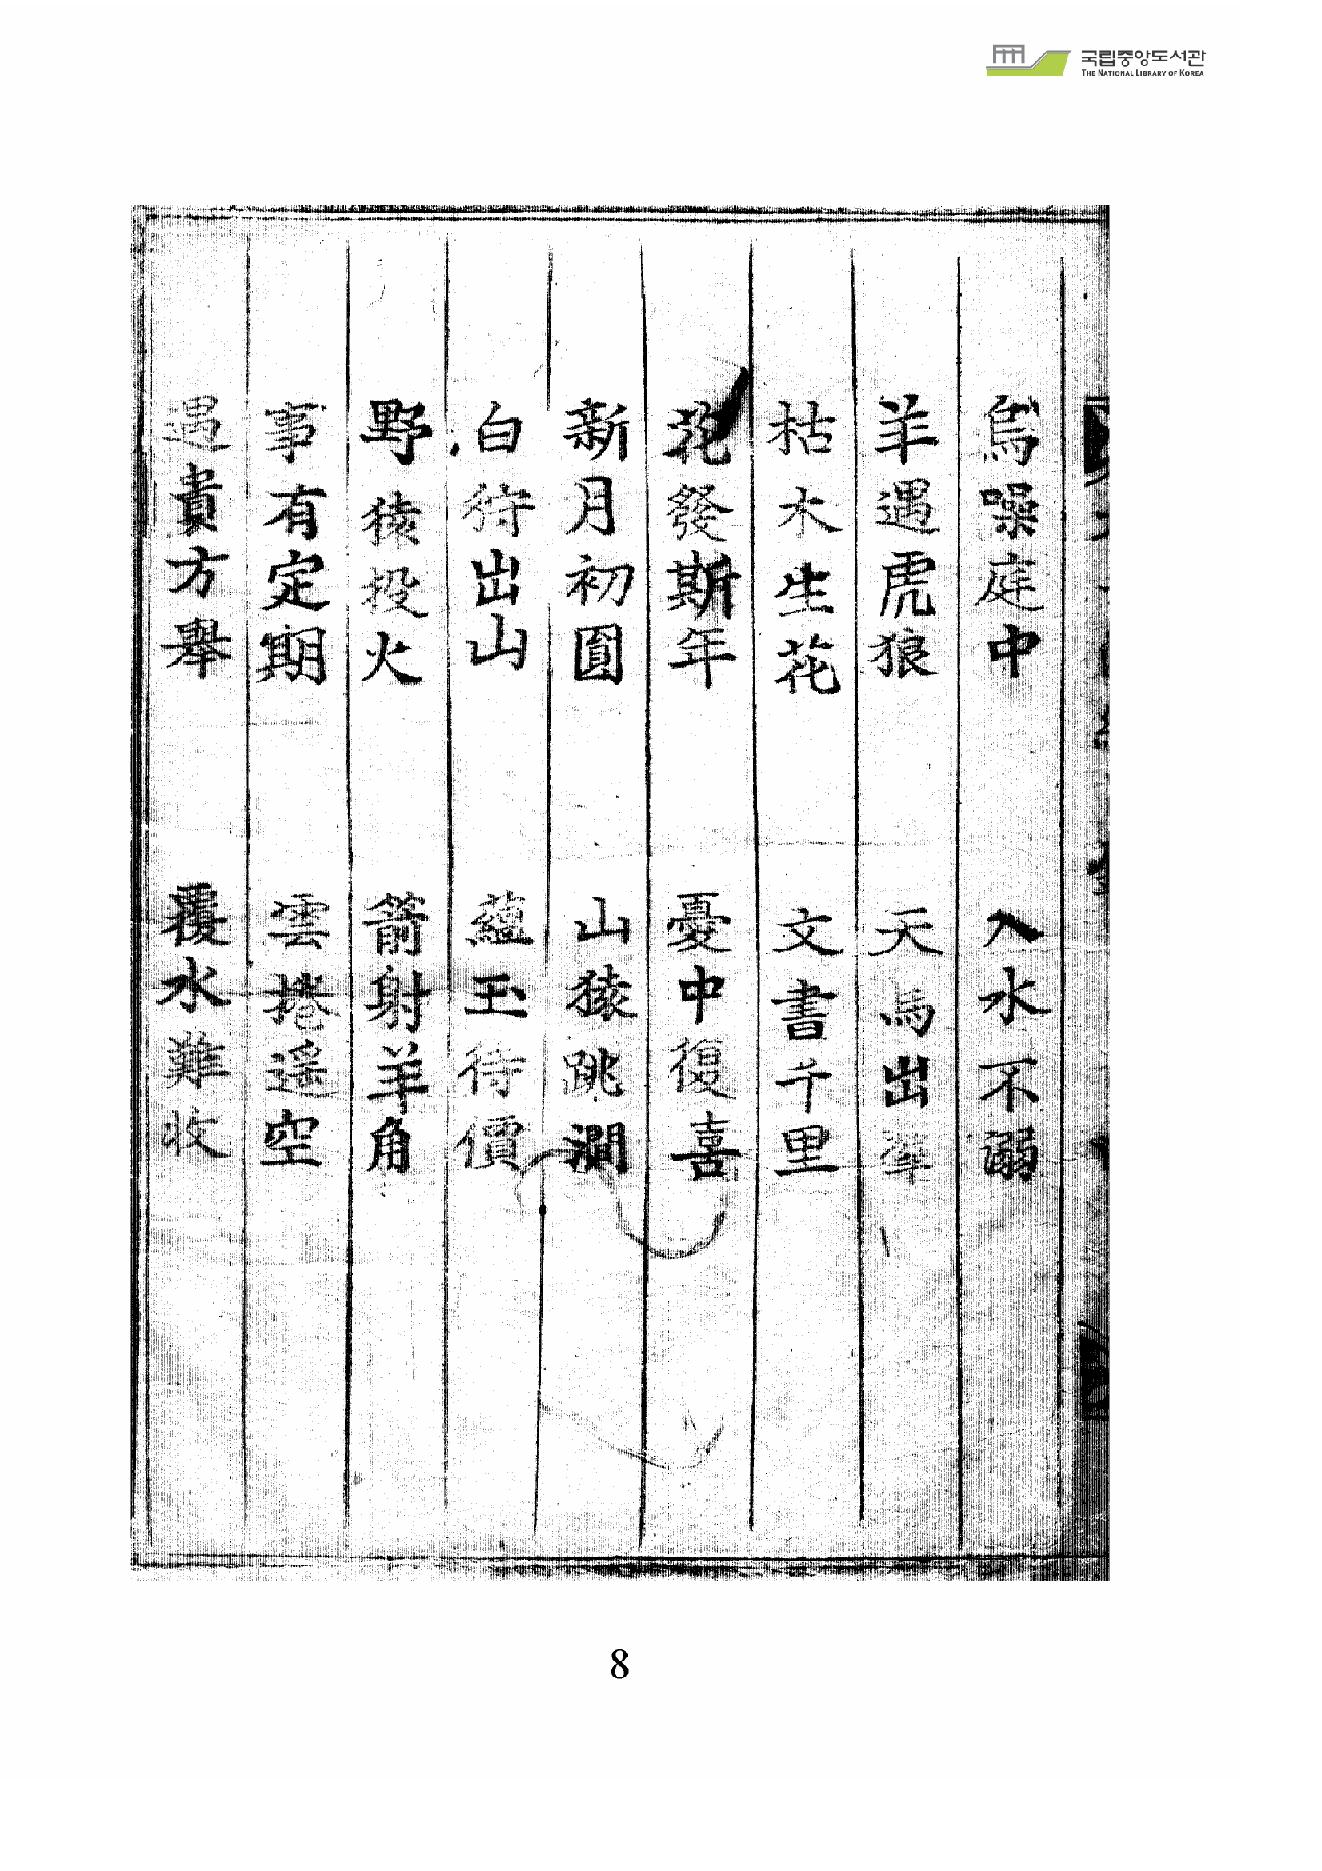 국립중앙도서관
THE NATIONAL LIBRARY OF KOREA
烏噪庭中 入水不溺
羊遇虎狼 天馬出羣
枯木生花 文書千里
花發斯年 憂中復喜
新月初圓 山猿跳澗
白符出山 蘊玉待價
野猿投火 箭射羊角
事有定期 雲捲遥空
遇貴方舉 覆水難收
8